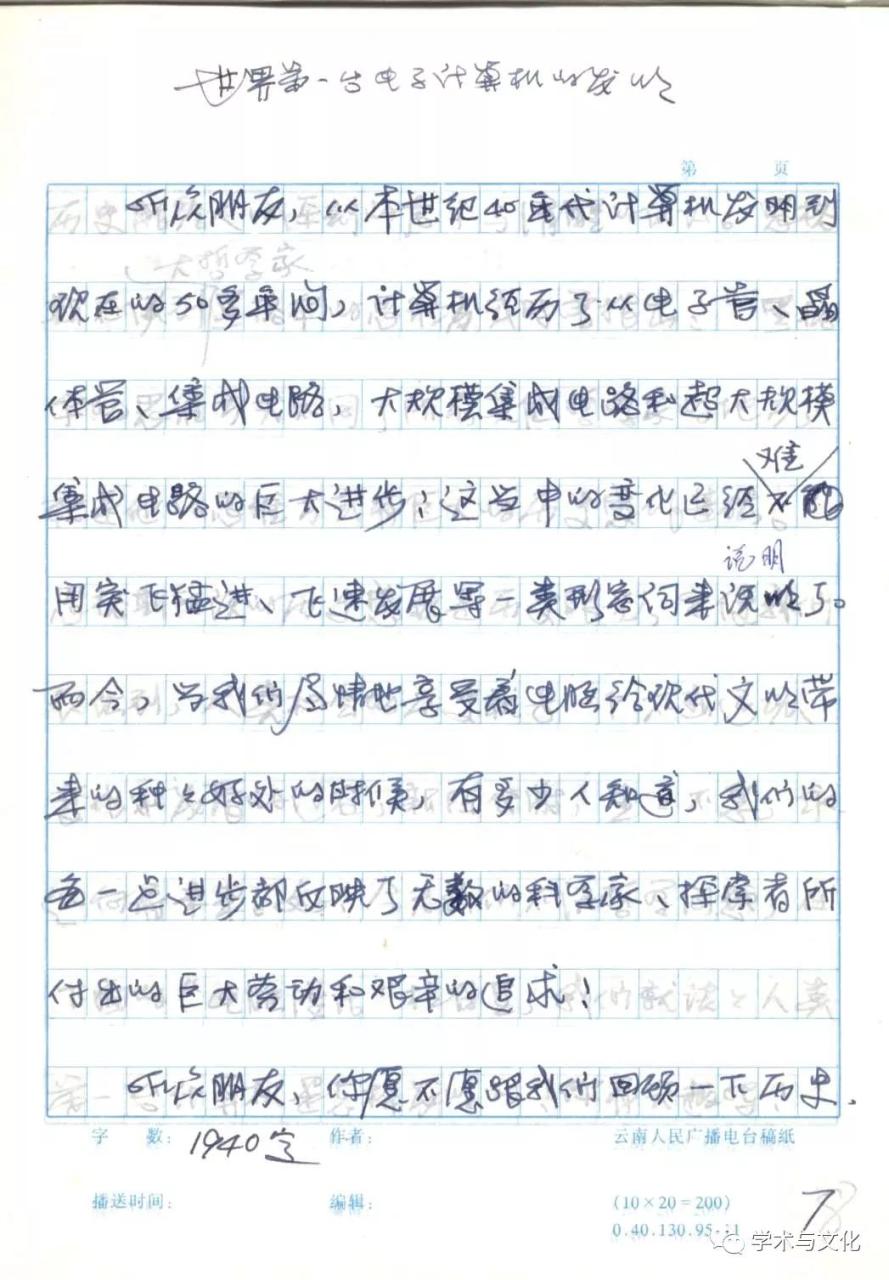 世界第一台电子计算机的发明
第 页
听众朋友,从本世纪40年代计算机发明到
现在的50多年间,计算机经历了从电子管、晶
体管、集成电路,大规模集成电路和超大规模
难
集成电路的巨大进步;这当中的变化已经不能
说明
用突飞猛进、飞速发展等一类形容词来说明了。
而今,当我们尽情地享受着电脑给现代文明带
来的种种好处的时候,有多少人知道,我们的
每一点进步都反映了无数的科学家、探索者所
付出的巨大劳动和艰辛的追求!
听众朋友,你愿不愿跟我们回顾一下历史.
字 数: 1940字 作者: 云南人民广播电台稿纸
播送时间: 编辑: (10×20=200) 7
0.40.130.95-11
学术与文化